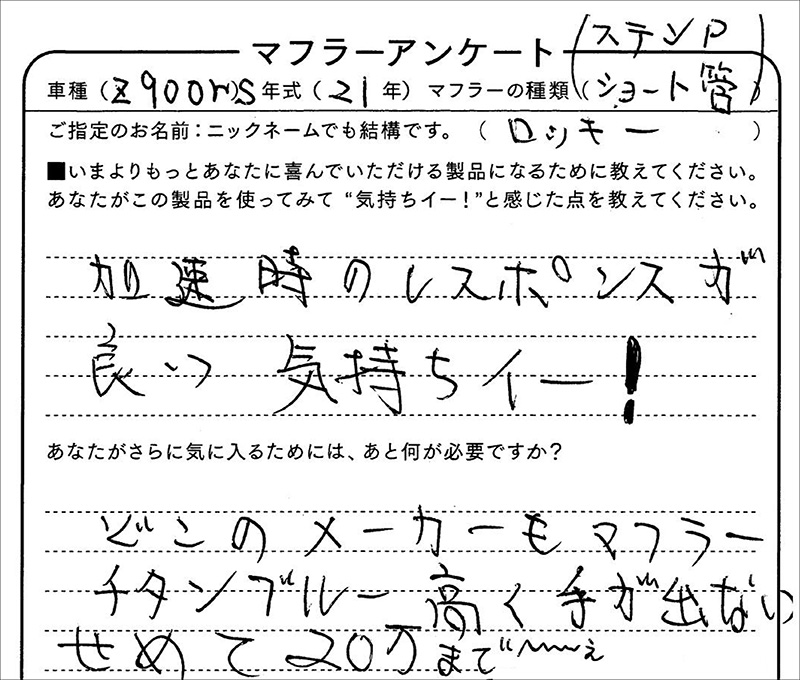 マフラーアンケート
車種（Z900rs）年式（21年）マフラーの種類（ステンP ショート管）
ご指定のお名前：ニックネームでも結構です。（ロッキー）
■いまよりもっとあなたに喜んでいただける製品になるために教えてください。
あなたがこの製品を使ってみて“気持ちイー！”と感じた点を教えてください。
加速時のレスポンスが
良いっ 気持ちイー！
あなたがさらに気に入るためには、あと何が必要ですか？
どこのメーカーもマフラー
チタンブルー高く手が出ない
せめて20万まで〜〜ぇ